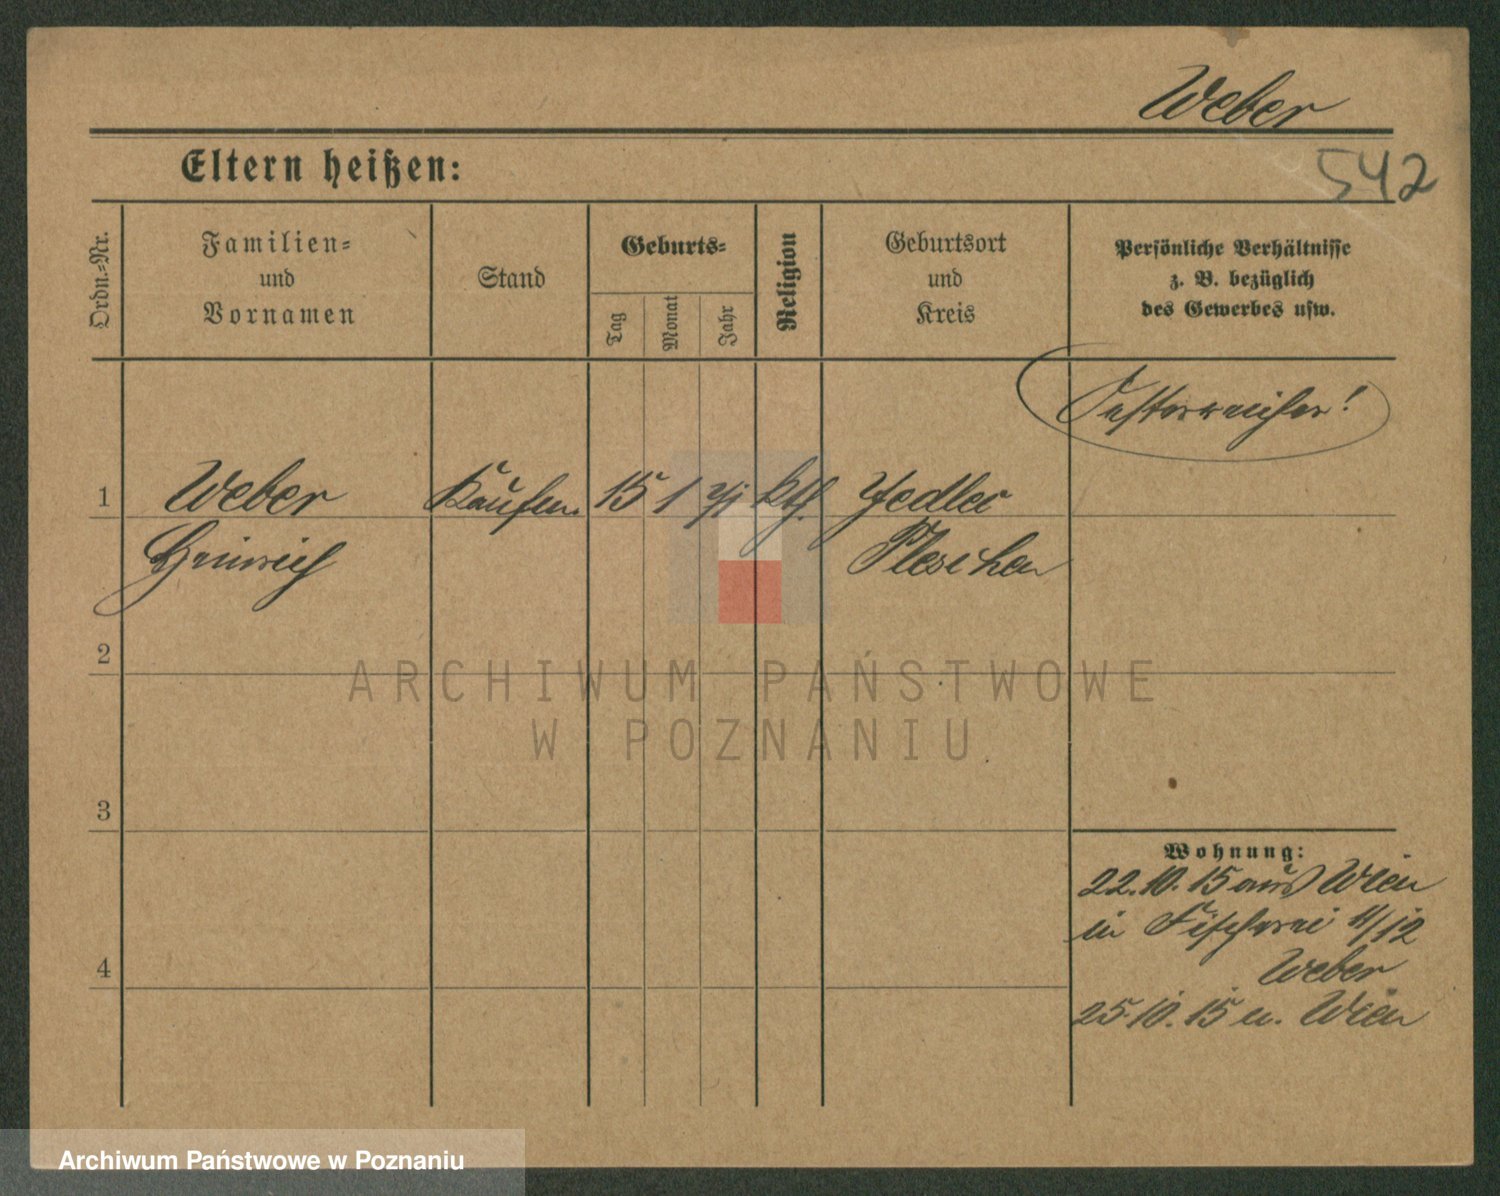 Weber
Eltern heißen:
542
Ordn.-Nr.
Familien=
und
Vornamen
Stand
Geburts=
Tag
Monat
Jahr
Religion
Geburtsort
und
Kreis
Persönliche Verhältnisse
z. B. bezüglich
des Gewerbes usw.
Oesterreicher!
1
Weber
Kaufm.
15
1
kth.
Jedlec
Heinrich
Pleschen
2
ARCHIWUM PAŃSTWOWE
W POZNANIU
3
Wohnung:
22.10.15 aus Wien
in Fischerei 11/12
Weber
4
25.10.15 n. Wien
Archiwum Państwowe w Poznaniu